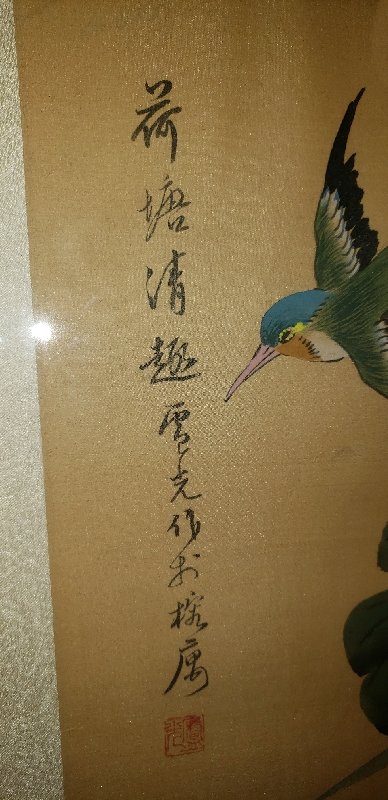 荷塘清趣雪光作于榕寓